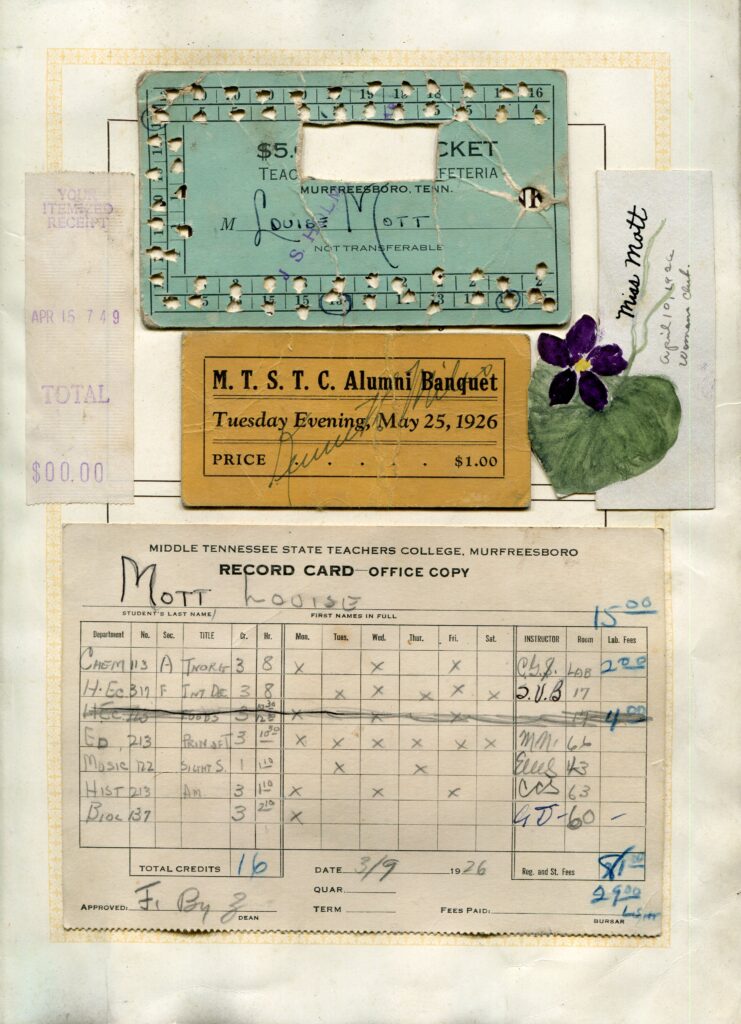 $5.
CKET
FETERIA
MURFREESBORO, TENN.
M LOUISE MOTT
NOT TRANSFERABLE
YOUR
ITEMIZED
RECEIPT
APR 15 7 4 9
TOTAL
$00.00
Miss Mott
April 10, 1926
Womans Club.
M. T. S. T. C. Alumni Banquet
Tuesday Evening, May 25, 1926
PRICE . . . . . $1.00
MIDDLE TENNESSEE STATE TEACHERS COLLEGE, MURFREESBORO
RECORD CARD—OFFICE COPY
MOTT LOUISE
STUDENT'S LAST NAME/ FIRST NAMES IN FULL
15 00
Department No. Sec. TITLE Cr. Hr. Mon. Tues. Wed. Thur. Fri. Sat. INSTRUCTOR Room Lab. Fees
CHEM 113 A INORG 3 8 x x x LAB 2 00
H. EC 317 F INT DE 3 8 x x x x x S.V.B 17
H EC. FOODS 3 17 4 00
ED. 213 PRIN OF T 3 10 30 x x x x x x M.N. 66
MUSIC 122 SIGHT S. 1 1 10 x x 43
HIST 213 AM 3 1 10 x x x CCS 63
BIOL 137 3 2 10 x 60 —
TOTAL CREDITS 16 DATE 3/9 1926 Reg. and St. Fees
QUAR.
29 00
APPROVED: DEAN TERM FEES PAID: BURSAR